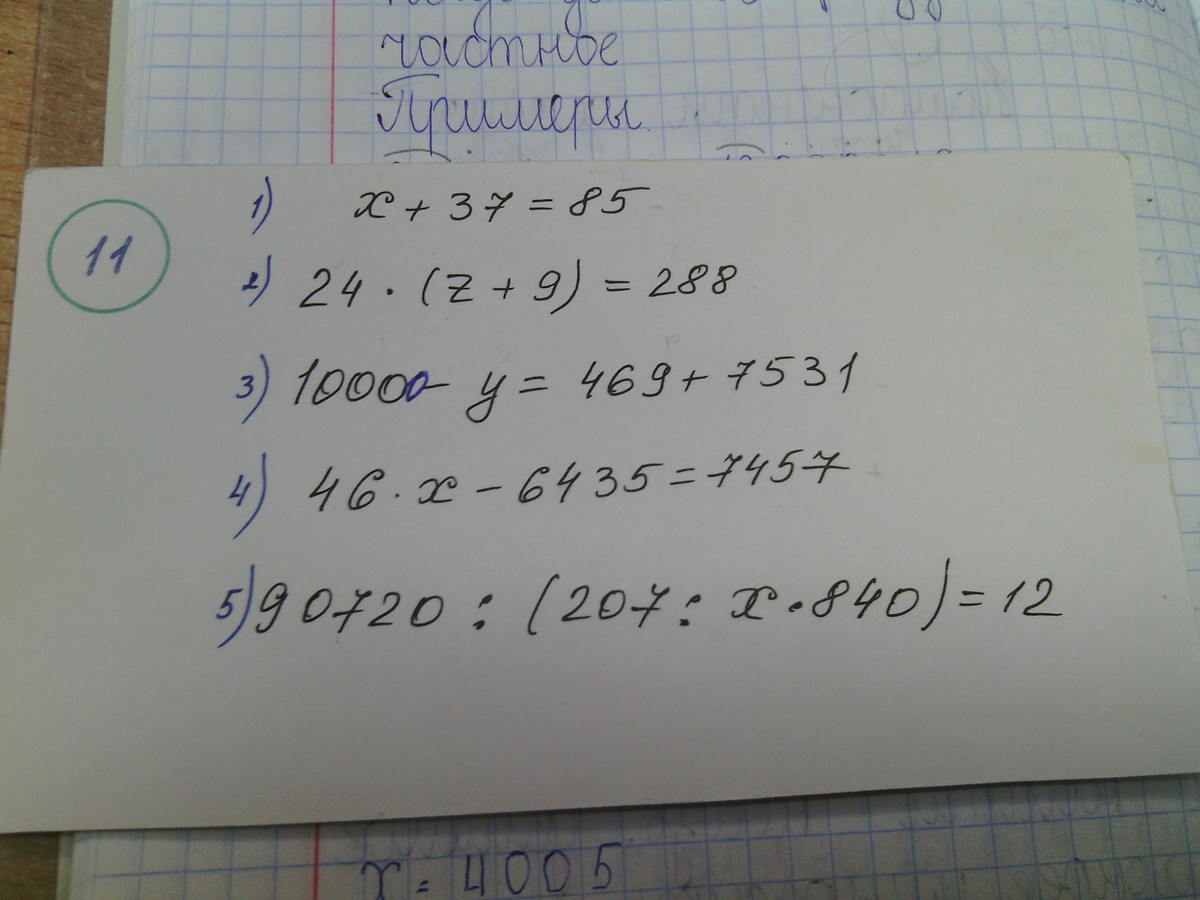 частное
Примеры
11
1) x + 37 = 85
2) 24 · (z + 9) = 288
3) 10000 - y = 469 + 7531
4) 46 · x - 6435 = 7457
5) 90720 : (207 : x · 840) = 12
x = 4005